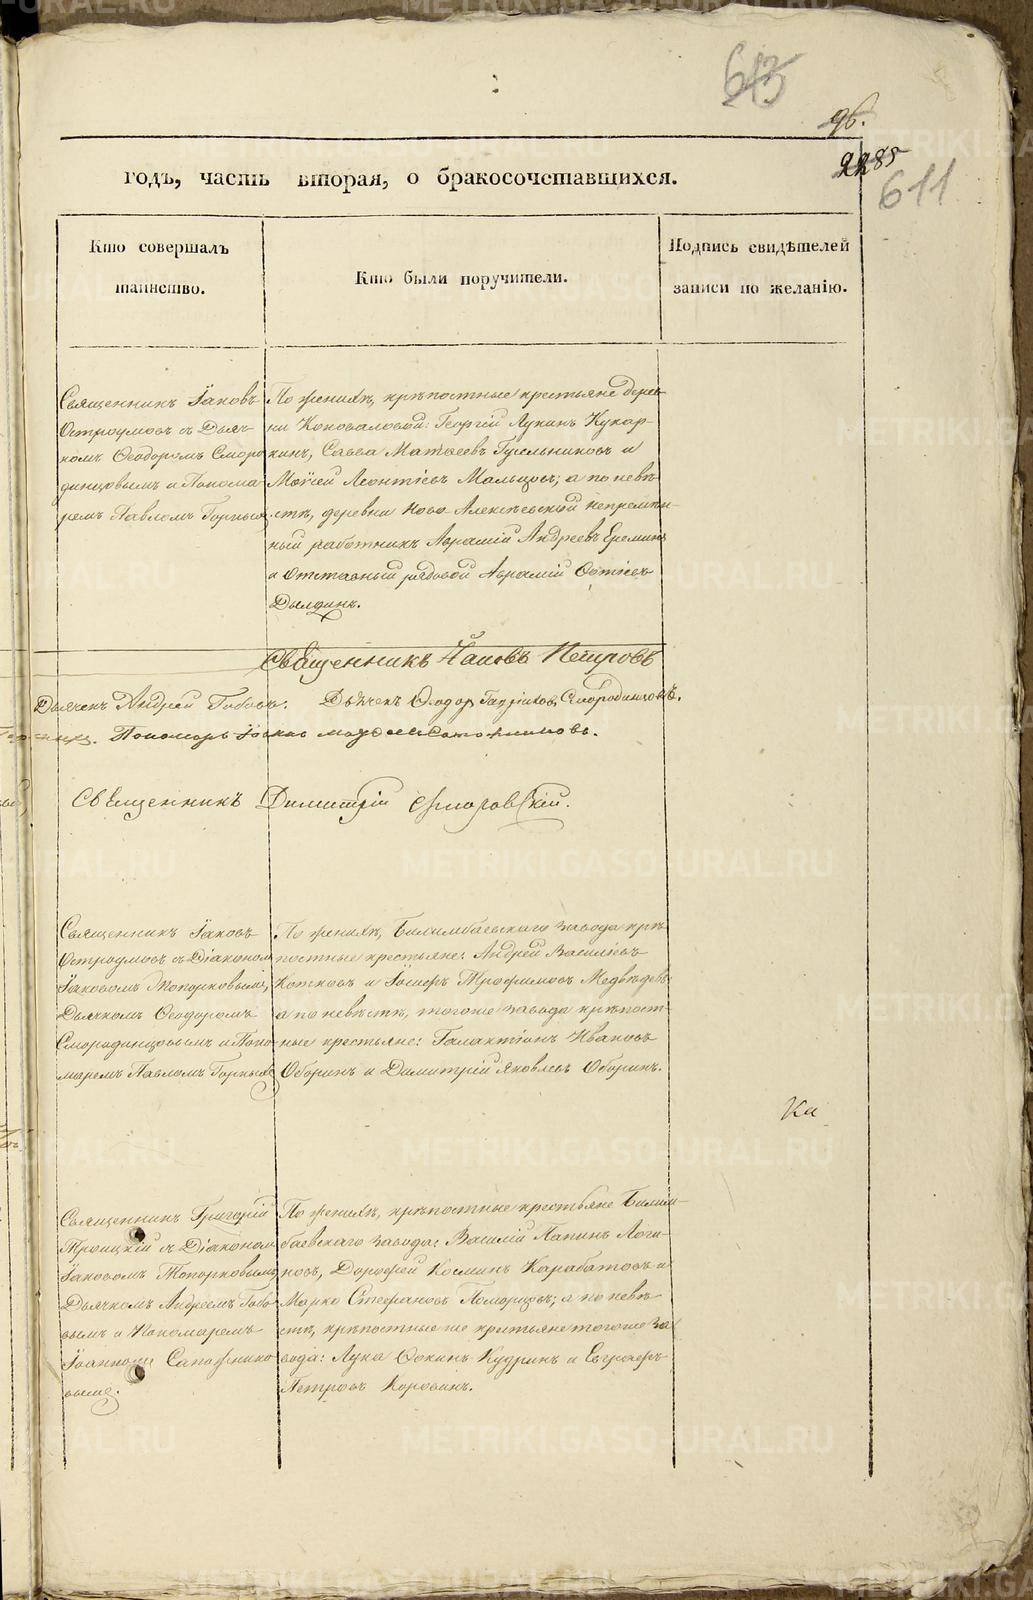 613
96.
2285
611
годъ, часть вторая, о бракосочетавшихся.
Кто совершалъ
таинство.
Кто были поручители.
Подпись свидѣтелей
записи по желанію.
Священникъ Іаковъ
Остроумовъ съ Дьяч-
комъ Ѳеодоромъ Сморо
динцовымъ и Понома-
ремъ Павломъ Горныхъ
По женихѣ, крѣпостные крестьяне дерев-
ни Коноваловой: Георгій Лукинъ Кукар-
кинъ, Савва Матвеевъ Гусельниковъ и
Моѵсей Леонтіевъ Мальцовъ; а по невѣ-
стѣ, деревни Ново-Алексѣевской непремѣн-
ный работникъ Авраамій Андреевъ Ереминъ
и отставный рядовой Авраамій
Дылдинъ.
Священникъ Іаковъ Петровъ
Дьячекъ Андрей Бобовъ. Дьячекъ Ѳеодоръ Смородинцовъ.
Пономарь Сапожниковъ.
Священникъ Димитрій Флоровскій.
Священникъ Іаковъ
Остроумовъ съ Діакономъ
Іаковомъ Топорковымъ,
Дьячкомъ Ѳеодоромъ
Смородинцовымъ и Поно-
маремъ Павломъ Горныхъ
По женихѣ, Билимбаевскаго завода крѣ-
постные крестьяне: Андрей Василіевъ
Котковъ и Іосифъ Трофимовъ Медвѣдевъ
а по невѣстѣ, тогоже завода крѣпост-
ные крестьяне: Галактіонъ Ивановъ
Оборинъ и Димитрій Яковлевъ Оборинъ.
Ка
Священникъ Григорій
Троицкій съ Діакономъ
Іаковомъ Топорковымъ
Дьячкомъ Андреемъ Бобо
вымъ и Пономаремъ
Іоанномъ Сапожнико
вымъ.
По женихѣ, крѣпостные крестьяне Билим-
баевскаго завода: Василій Папинъ Логи-
новъ, Дорофей Косминъ Карабатовъ и
Марко Стефановъ Поморцовъ; а по невѣ
стѣ, крѣпостные же крестьяне тогоже за
вода: Лука Фокинъ Кудринъ и Евграфъ
Петровъ Коровинъ.
METRIKI.GASO-URAL.RU